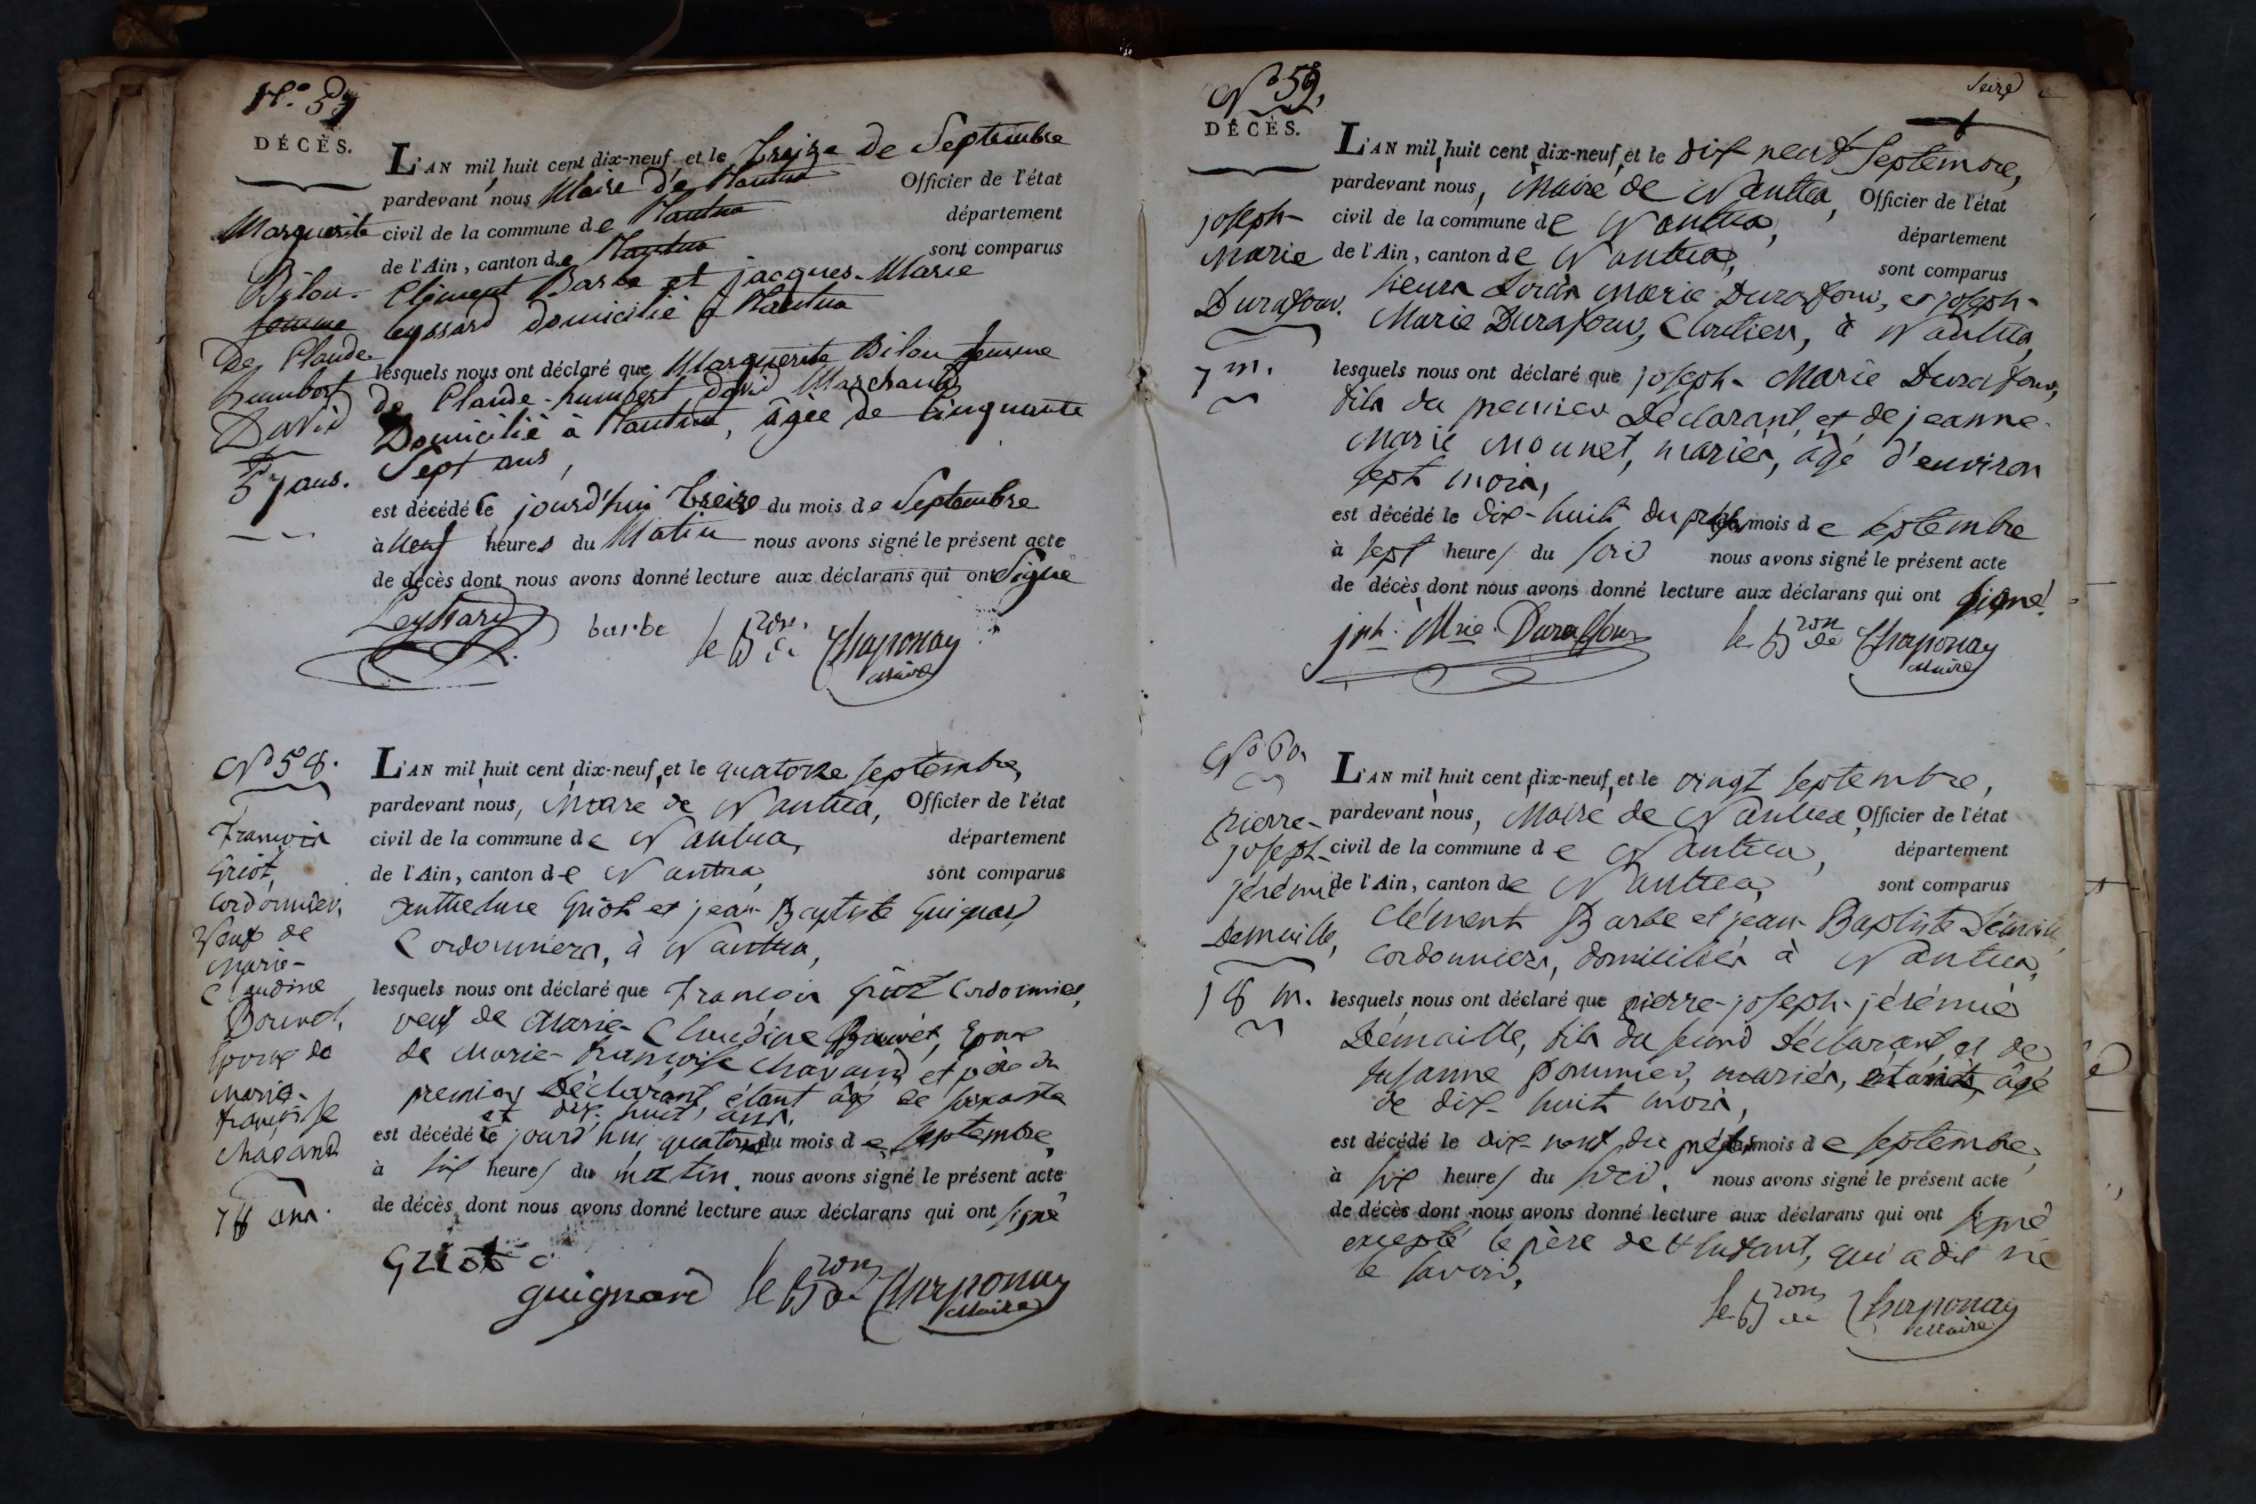 N.° 57
DÉCÈS.
Marguerite
Bilou
femme
de Claude
humbert
David
57 ans.
L'AN mil huit cent dix-neuf et le Treize de Septembre
pardevant nous Maire de Nantua Officier de l'état
civil de la commune de Nantua département
de l'Ain, canton de Nantua sont comparus
Clément Barbe et jacques-Marie
leyssard domicilié a Nantua
lesquels nous ont déclaré que Marguerite Bilou femme
de Claude-humbert david Marchand
Domicilié à Nantua, âgée de Cinquante
Sept ans,
est décédé le jourd'hui Treize du mois de Septembre
à Neuf heures du Matin nous avons signé le présent acte
de décès dont nous avons donné lecture aux déclarans qui ont Signé
Leyssard barbe le Bron de Chaponay
Maire
N° 58.
François
Griot,
Cordonnier,
Veuf de
Marie-
Claudine
Bouvet,
époux de
marie-
françoise
chavand
78 ans.
L'AN mil huit cent dix-neuf, et le quatorze septembre,
pardevant nous, Maire de Nantua, Officier de l'état
civil de la commune de Nantua, département
de l'Ain, canton de Nantua, sont comparus
Anthelme Griot et jean-Baptiste Guignard
Cordonniers, à Nantua,
lesquels nous ont déclaré que françois griot Cordonnier,
veuf de Marie-Claudine Bouvet, Epoux
de Marie-françoise Chavand et père du
premier Déclarant étant âgé de soixante
et dix-huit ans,
est décédé le jourd'hui quatorze du mois de Septembre,
à six heures du matin, nous avons signé le présent acte
de décès dont nous avons donné lecture aux déclarans qui ont signé
Griot
guignard le Bron de Chaponay
Maire
N° 59,
DÉCÈS.
joseph-
Marie
Durafour.
7 m.
seize
L'AN mil huit cent dix-neuf, et le dix neuf Septembre,
pardevant nous, Maire de Nantua, Officier de l'état
civil de la commune de Nantua, département
de l'Ain, canton de Nantua, sont comparus
sieurs Louis Marie Durafour, et joseph-
Marie Durafour, Cloutiers, à Nantua,
lesquels nous ont déclaré que joseph-Marie Durafour,
fils du premier Déclarant, et de jeanne-
Marie Mounet, mariés, âgé d'environ
sept mois,
est décédé le dix-huit du présent mois de septembre
à sept heures du soir nous avons signé le présent acte
de décès dont nous avons donné lecture aux déclarans qui ont signé.
jph. Mrie. Duraffour le Bron de Chaponay
Maire
N° 60,
pierre-
joseph-
jérémie
Demaille,
18 m.
L'AN mil huit cent dix-neuf, et le vingt septembre,
pardevant nous, Maire de Nantua, Officier de l'état
civil de la commune de Nantua, département
de l'Ain, canton de Nantua, sont comparus
Clément Barbe et jean-Baptiste Démaille
Cordonniers, domiciliés à Nantua,
lesquels nous ont déclaré que pierre-joseph-jérémie
Démaille, fils du second Déclarant, et de
Susanne pommier, mariés, âgé
de dix-huit mois,
est décédé le dix-neuf du présent mois de septembre,
à six heures du soir, nous avons signé le présent acte
de décès dont nous avons donné lecture aux déclarans qui ont signé
excepté le père de l'enfant, qui a dit ne
le savoir,
le Bron de Chaponay
Maire